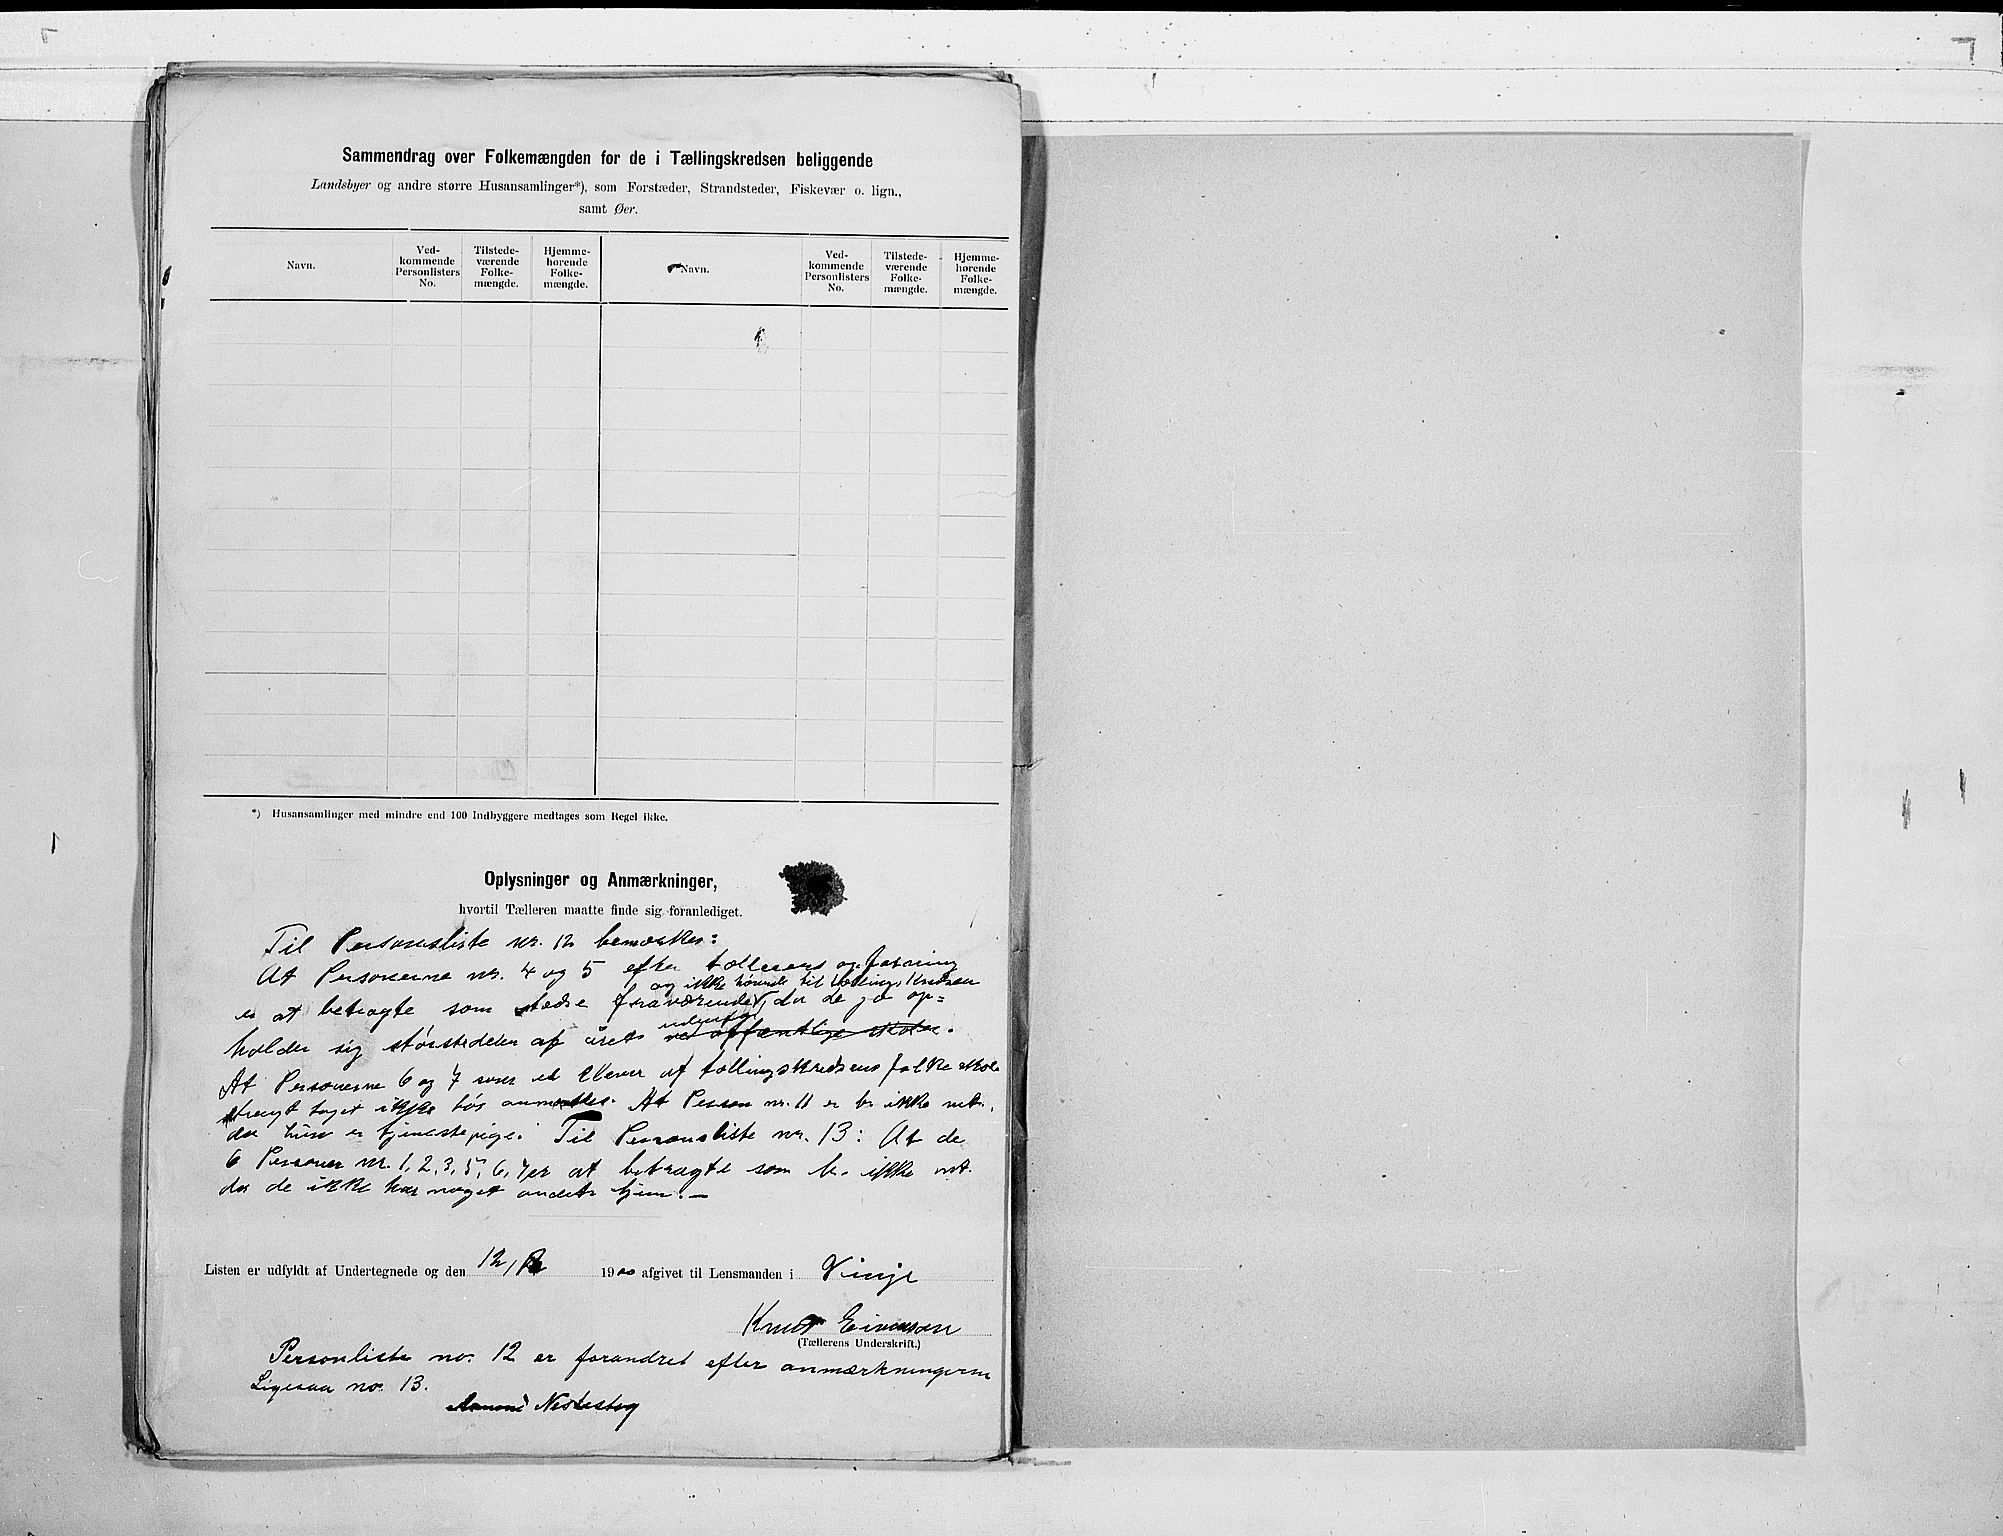 Sammendrag over Folkemængden for de i Tællingskredsen beliggende
Landsbyer og andre større Husansamlinger*), som Forstæder, Strandsteder, Fiskevær o. lign.,
samt Øer.
Navn.
Ved-
kommende
Personlisters
No.
Tilstede-
værende
Folke-
mængde.
Hjemme-
hørende
Folke-
mængde.
Navn.
Ved-
kommende
Personlisters
No.
Tilstede-
værende
Folke-
mængde.
Hjemme-
hørende
Folke-
mængde.
*) Husansamlinger med mindre end 100 Indbyggere medtages som Regel ikke.
Oplysninger og Anmærkninger,
hvortil Tælleren maatte finde sig foranlediget.
Til Personsliste nr. 12 bemærkes:
At Personerne nr. 4 og 5 efter tællerens opfatning
og ikke hørende til tællings Kredsen
er at betragte som stedse fraværende, da de jo op=
holder sig størstedelen af året udenfor ved offentlige skoler.
At Personerne 6 og 7 som er Elever af tællingskredsens folkeskole
strengt taget ikke bør anmerkes. At Person nr. 11 er b. ikke mt.
da hun er tjenestepige. Til Personsliste nr. 13: At de
6 Personer nr. 1, 2, 3, 5, 6, 7 er at betragte som b. ikke mt.
da de ikke har noget andet hjem. —
Listen er udfyldt af Undertegnede og den 12/ 1900 afgivet til Lensmanden i Vinje
Knut Eivindson
(Tællerens Underskrift.)
Personliste no. 12 er forandret efter anmærkningerne
Ligesaa no. 13.
Aamund Nordstog